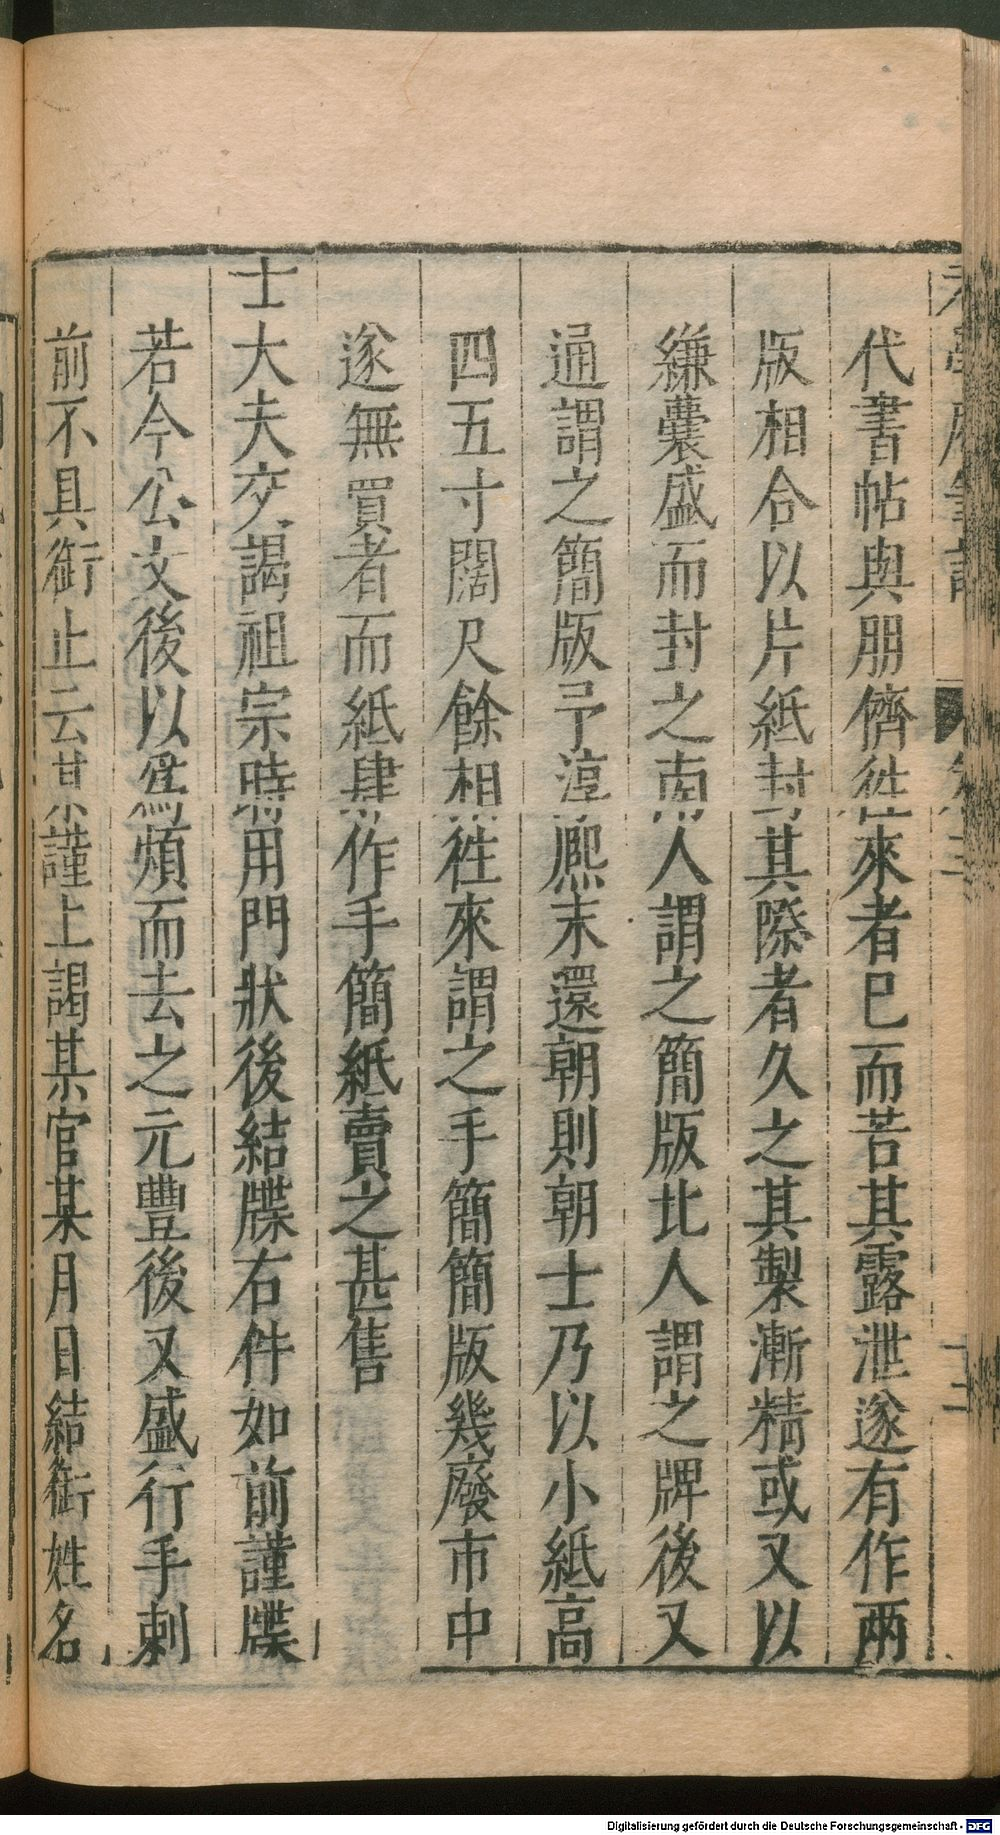 代書帖與朋儕徃來者巳而苦其露泄遂有作兩
版相合以片紙封其際者久之其製漸精或又以
縑囊盛而封之南人謂之簡版北人謂之牌後又
通謂之簡版予淳熈末還朝則朝士乃以小紙高
四五寸闊尺餘相徃來謂之手簡簡版幾廢市中
遂無買者而紙肆作手簡紙賣之甚售
士大夫交謁祖宗時用門狀後結牒右件如前謹牒
若今公文後以為煩而去之元豐後又盛行手刺
前不具銜止云某謹上謁某官某月日結銜姓名
Digitalisierung gefördert durch die Deutsche Forschungsgemeinschaft - DFG